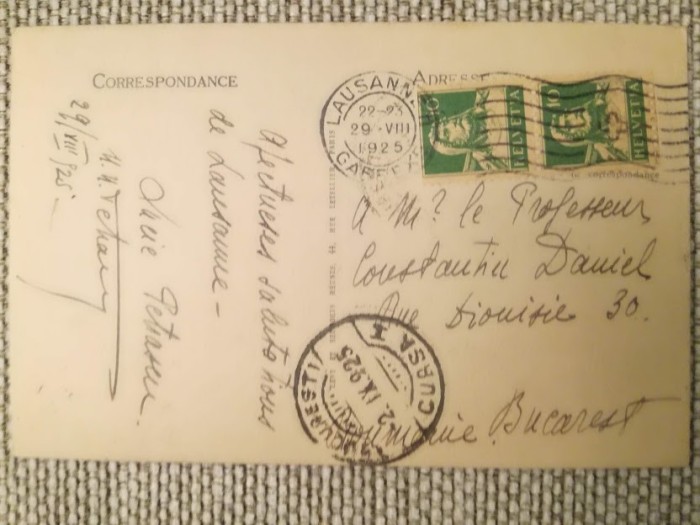 CORRESPONDANCE
ADRESSE
Afectueuses salutations
de Lausanne -
29/VIII 925 -
LAUSANNE
22-23
29.VIII
1925
GARE
10
HELVETIA
10
HELVETIA
A Mr. le Professeur
Constantin Daniel
Rue Dionisie 30.
Roumanie Bucarest
BUCURESTI
2. IX. 925
CURSA